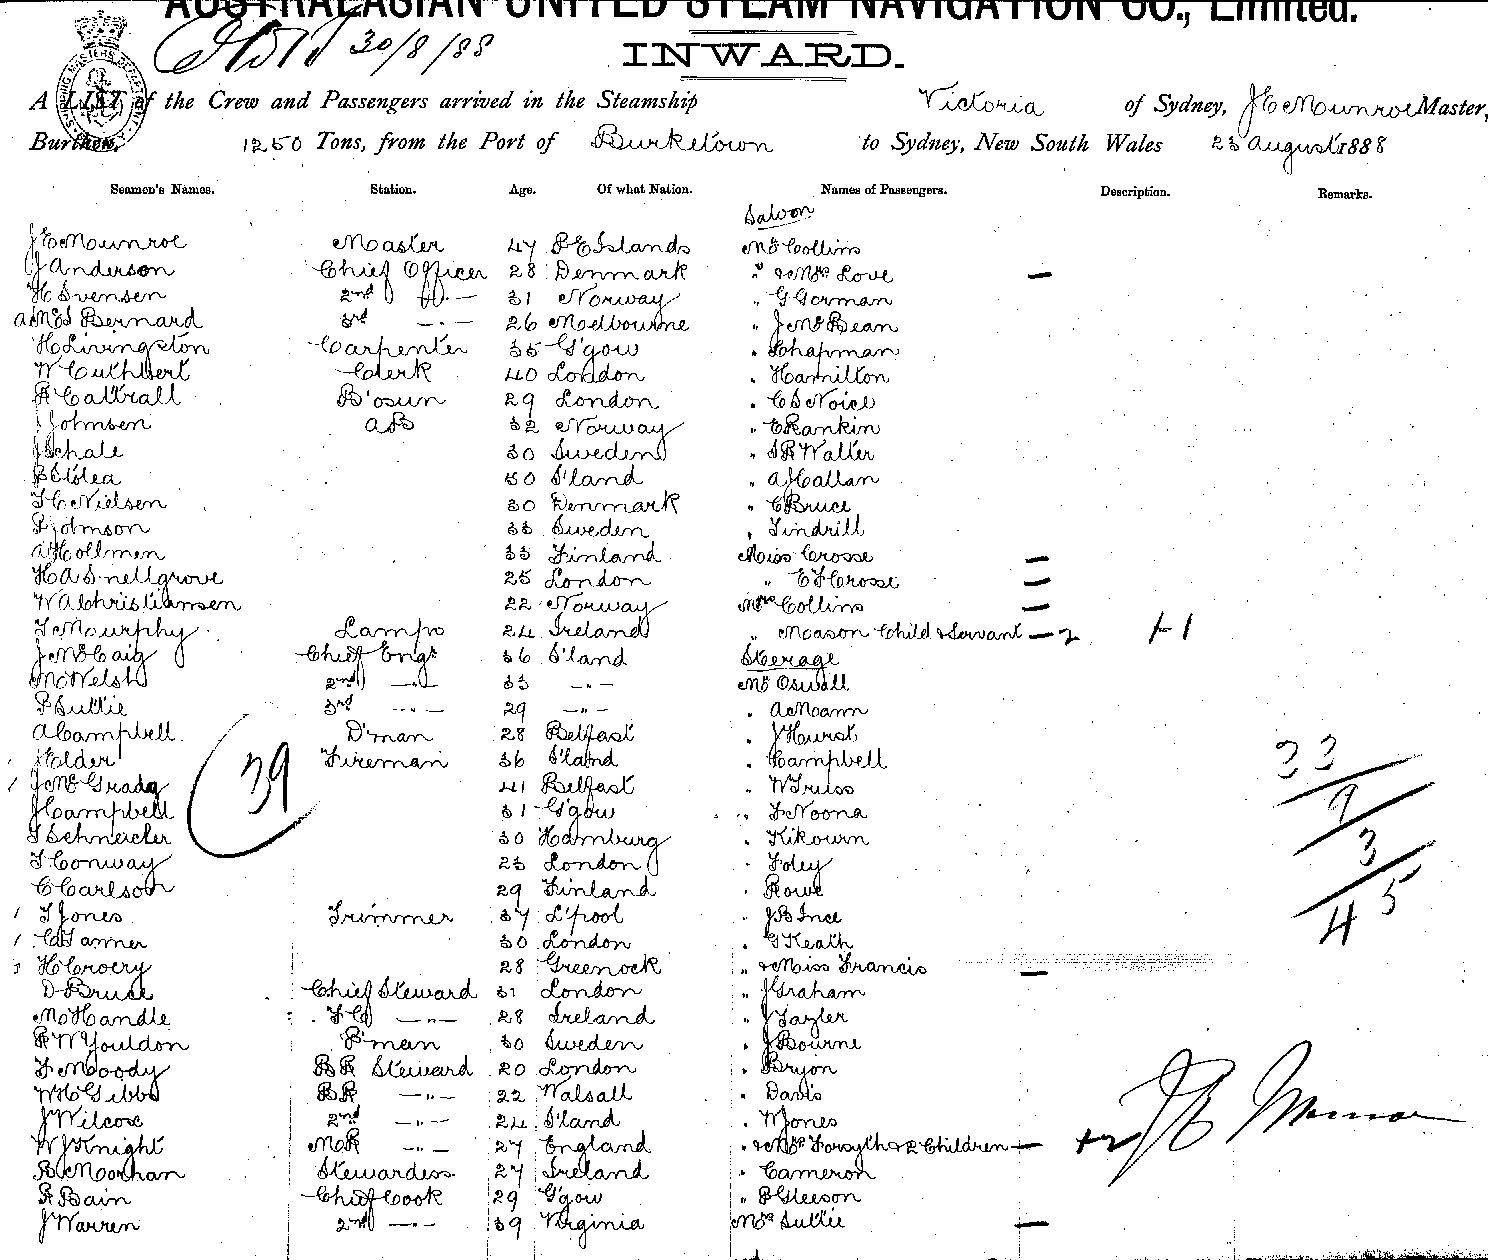 AUSTRALASIAN UNITED STEAM NAVIGATION CO., Limited.
30/8/88
INWARD.
A LIST of the Crew and Passengers arrived in the Steamship Victoria of Sydney, J E Munroe Master,
Burthen, 1250 Tons, from the Port of Burketown to Sydney, New South Wales 23 August 1888
Seamen's Names. Station. Age. Of what Nation. Names of Passengers. Description. Remarks.
Saloon
J E Munroe Master 47 P E Islands Mr Collins
J Anderson Chief Officer 28 Denmark " & Mrs Love —
H Svensen 2nd Do — 31 Norway " G Gorman
Bernard 3rd — " — 26 Melbourne " J McBean
H Livingston Carpenter 35 G'gow " Chapman
W Cuthbert Clerk 40 London " Hamilton
R Cattrall B'osun 29 London " C S Noice
J Johnsen AB 32 Norway " E Rankin
J Schale 30 Sweden " S R Walter
50 S'land " A Hallan
H C Nielsen 30 Denmark " C Bruce
P Johnson 33 Sweden " Tindrill
A Hollmen 33 Finland Miss Crosse —
H A Snellgrove 25 London " E F Crosse —
W A Christiansen 22 Norway Mrs Collins —
T Murphy Lamps 24 Ireland " Mason Child & Servant — 2 + 1
J McCaig Chief Engr 36 S'land Steerage
M Welsh 2nd — " — 33 — " — Mr Oswall
P Suttie 3rd — " — 29 — " — " A McCann
A Campbell D'man 28 Belfast " J Hurst
J Elder Fireman 36 S'land " Campbell 33
J McGrady 39 41 Belfast " W Truss
J Campbell 31 G'gow " F Noona 9
T Schneider 30 Hamburg " Kikourn
T Conway 23 London " Foley 3
C Carlson 29 Finland " Rowe
T Jones Trimmer 37 L'pool " J B Ince 45
C Tanner 30 London " G Keath
H Crocry 28 Greenock " & Miss Francis —
D Bruce Chief Steward 31 London " J Graham
M Handle F C — " — 28 Ireland " J Tayler
R W Youldon P'man 30 Sweden " J Bourne
F Moody B R Steward 20 London " Bryon
W H Gibbs B R — " — 22 Walsall " Davis
J Wilcox 2nd — " — 24 S'land " W Jones
W J Knight M R — " — 27 England " & Mrs Forsyth & 2 Children — +2 J E Munroe
B Moohan Stewardess 27 Ireland " Cameron
R Bain Chief Cook 29 G'gow " P Gleeson
J Warren 2nd — " — 39 Virginia Mrs Suttie —